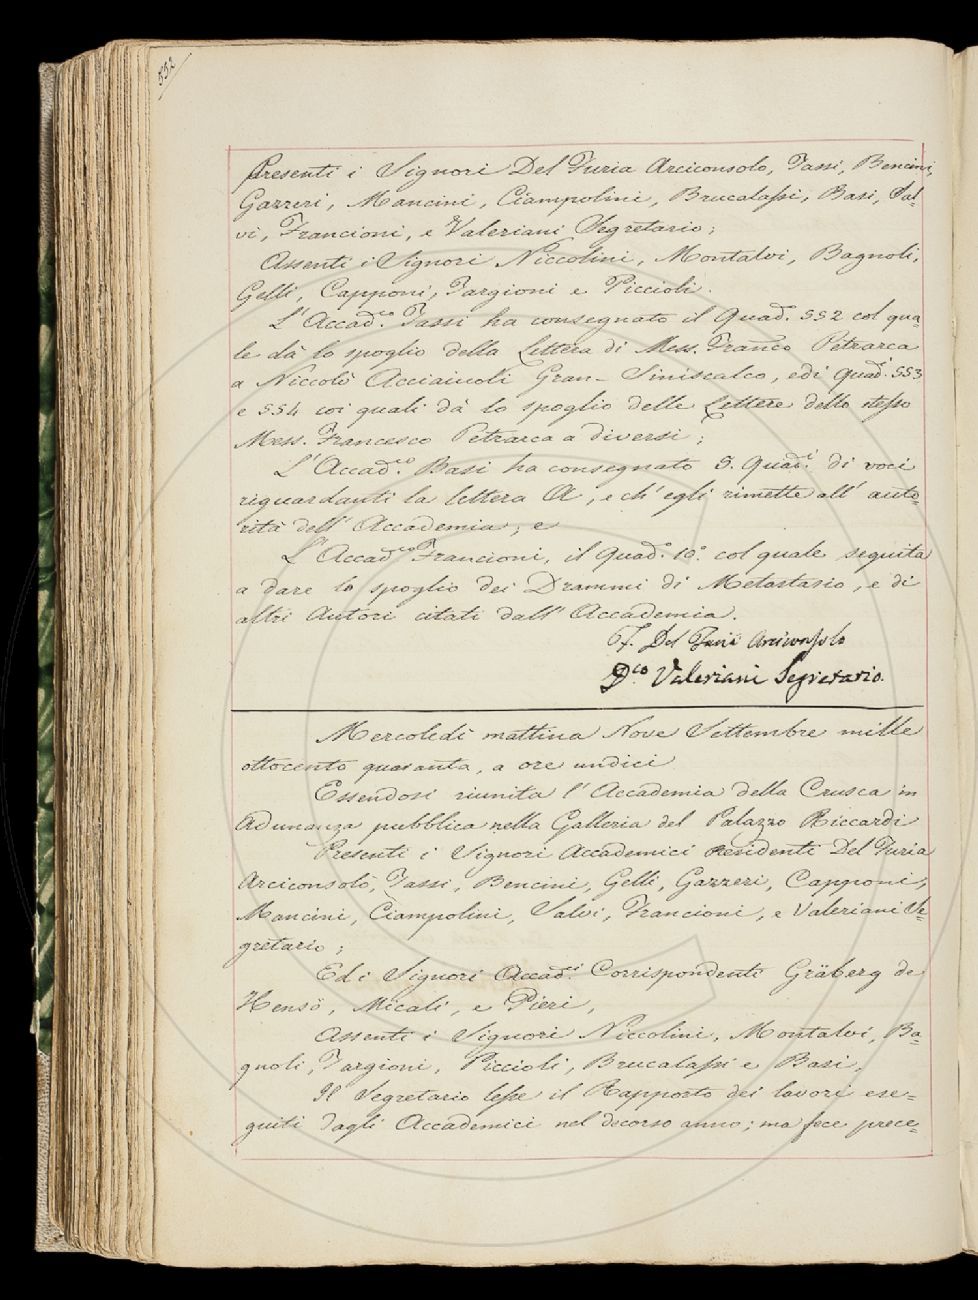 532
Presenti i Signori Del Furia Arciconsolo, Tassi, Bencini,
Gazzeri, Mancini, Ciampolini, Brucalassi, Basi, Sal-
vi, Francioni, e Valeriani Segretario;
Assenti i Signori Niccolini, Montalvi, Bagnoli,
Gelli, Capponi, Targioni e Piccioli.
L'Accad.co Tassi ha consegnato il Quad.o 552 col qua-
le dà lo spoglio della Lettera di Mess. Franco Petrarca
a Niccolò Acciaiuoli Gran-Siniscalco, ed i Quad.i 553
e 554 coi quali dà lo spoglio delle Lettere dello stesso
Mess. Francesco Petrarca a diversi;
L'Accad.co Basi ha consegnato 5. Quad.i di voci
riguardanti la lettera A, e ch'egli rimette all'auto-
rità dell'Accademia; e
L'Accad.co Francioni, il Quad.o 10.o col quale seguita
a dare lo spoglio dei Drammi di Metastasio, e di
altri Autori citati dall'Accademia.
F. Del Furia Arciconsolo
D.co Valeriani Segretario.
Mercoledì mattina Nove Settembre mille
ottocento quaranta, a ore undici
Essendosi riunita l'Accademia della Crusca in
Adunanza pubblica nella Galleria del Palazzo Riccardi
Presenti i Signori Accademici Residenti Del Furia
Arciconsolo, Tassi, Bencini, Gelli, Gazzeri, Capponi,
Mancini, Ciampolini, Salvi, Francioni, e Valeriani Se-
gretario;
Ed i Signori Accad.ci Corrispondenti Gräberg de
Hensö, Micali, e Pieri,
Assenti i Signori Niccolini, Montalvi, Ba-
gnoli, Targioni, Piccioli, Brucalassi e Basi.
Il Segretario lesse il Rapporto dei lavori ese-
guiti dagli Accademici nel decorso anno; ma fece prece-